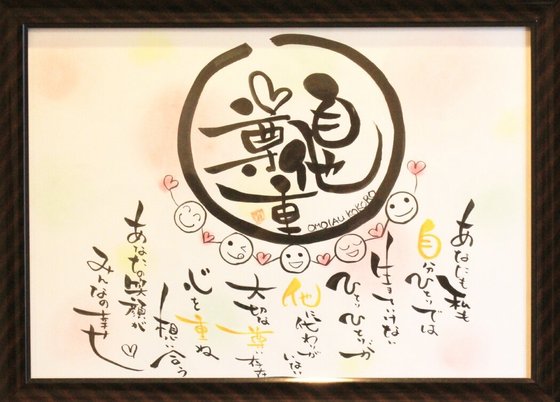 自他
尊重
OMOIAU KOKORO
あなたも私も
自分ひとりでは
生きていけない
ひとりひとりが
他に代わりがいない
大切な尊い存在
心を重ね
想い合う
あなたの笑顔が
みんなの幸せ